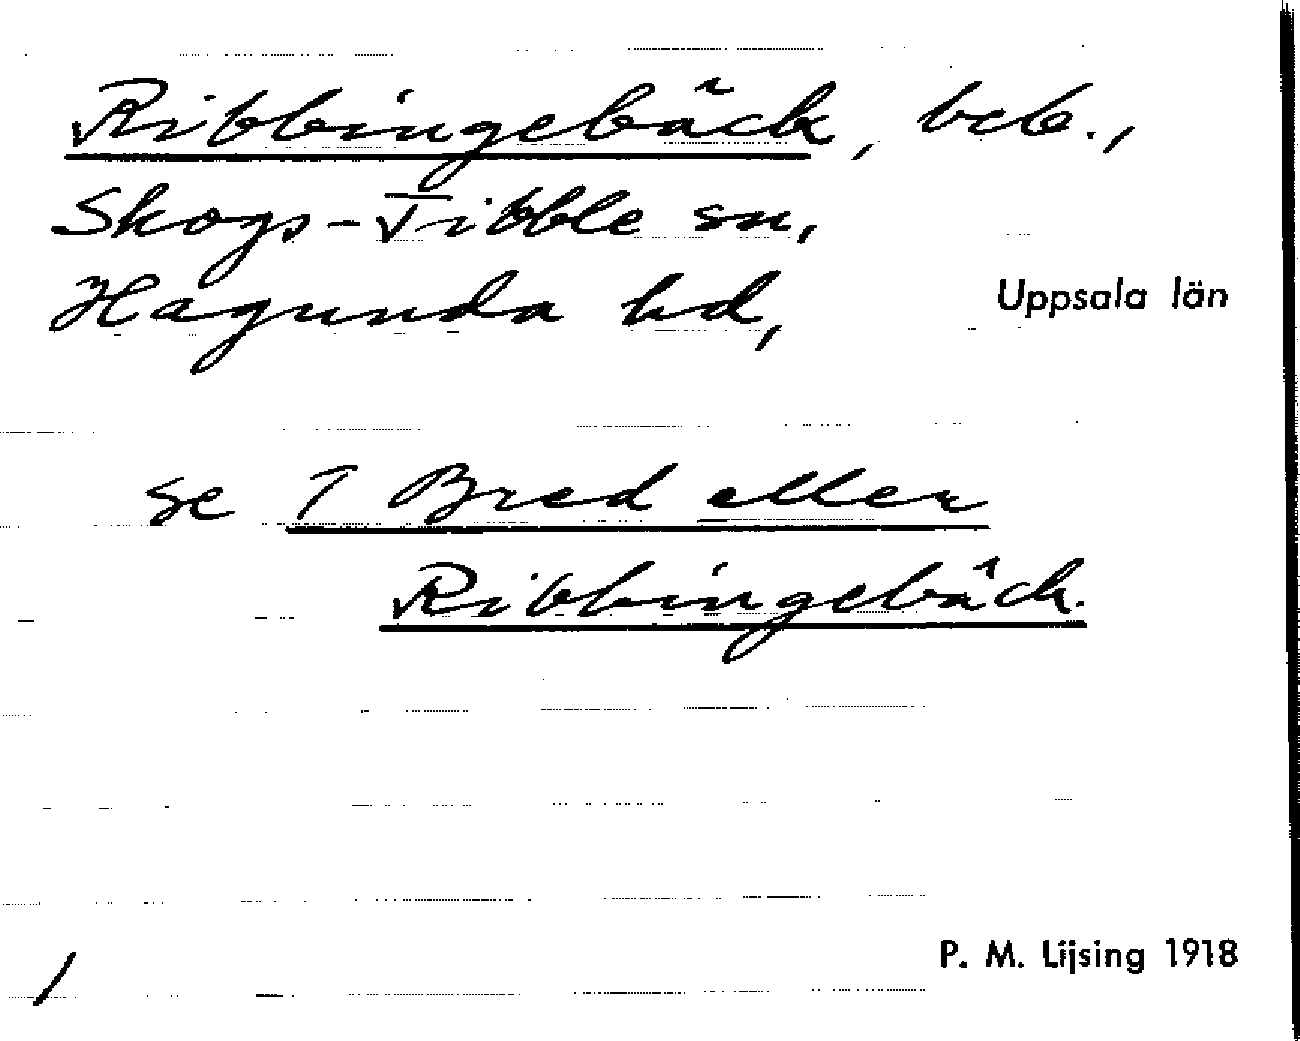 Ribbingebäck, beb.,
Skogs-Tibble sn,
Hagunda hd,
Uppsala län
se ↑ Bred eller
Ribbingebäck.
P. M. Lijsing 1918